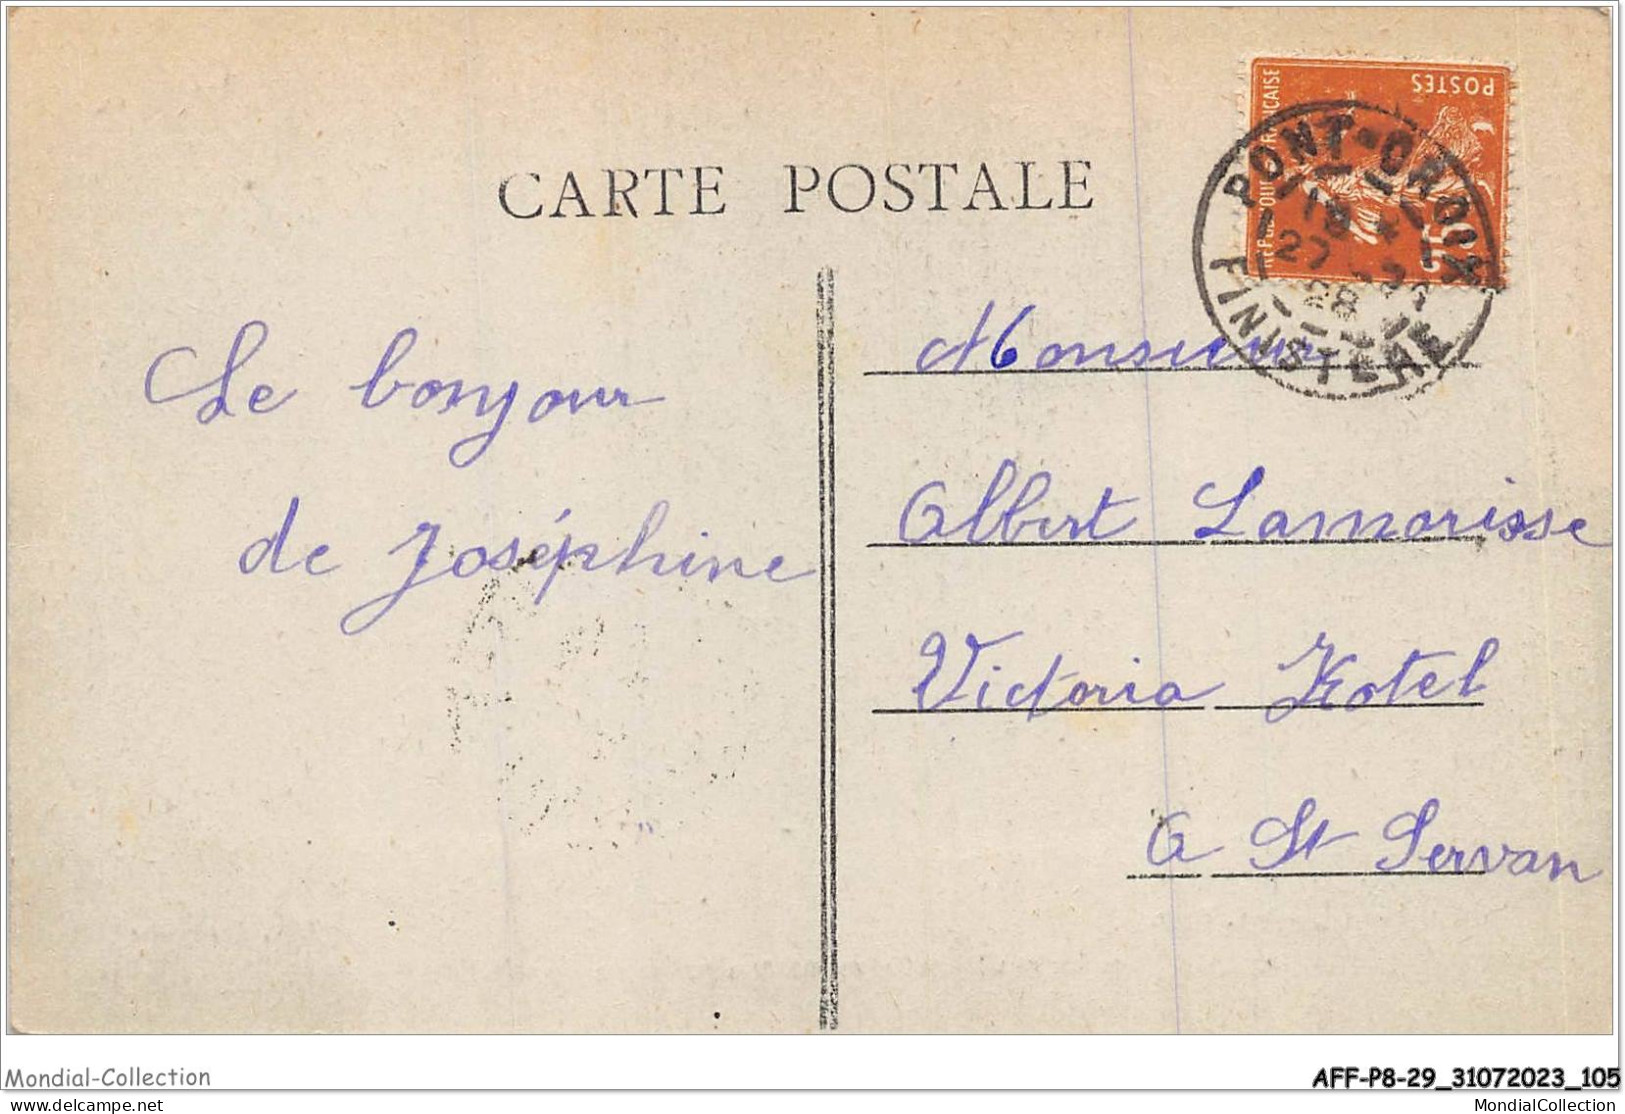 CARTE POSTALE
POSTES
REPUBLIQUE FRANCAISE
PONT-CROIX
FINISTERE
28
Le bonjour
de Joséphine
Monsieur
Albert Lamorisse
Victoria Hotel
A St Servan
Mondial-Collection
AFF-P8-29_31072023_105
delcampe.net
MondialCollection